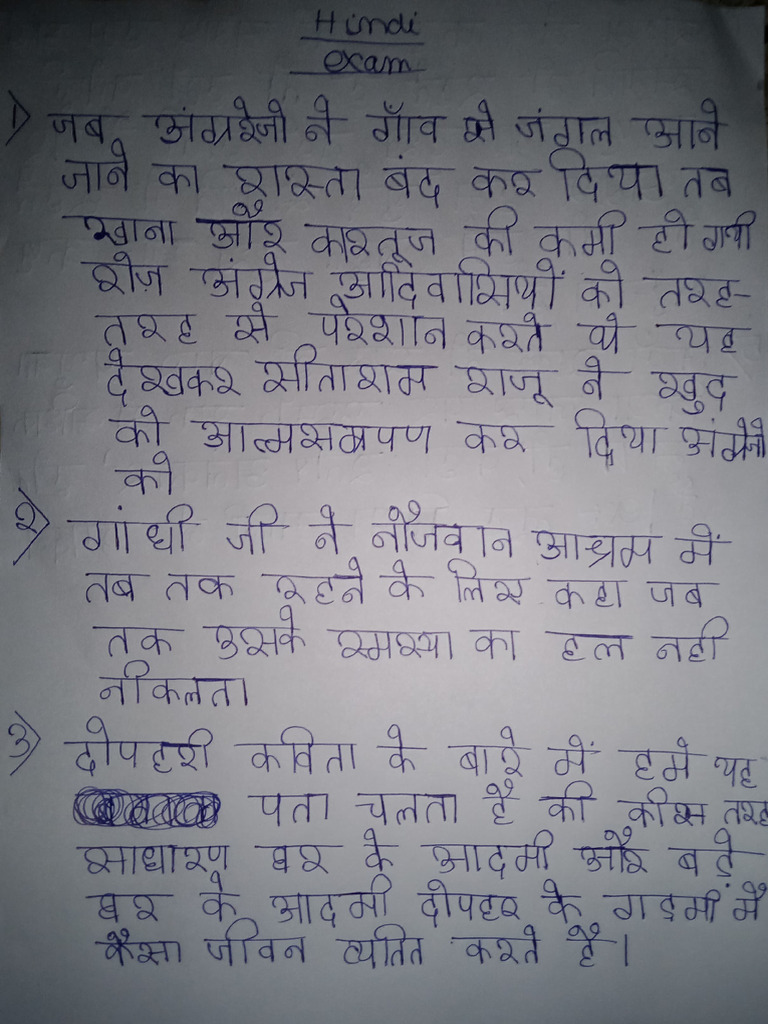 Hindi
exam
1) जब अंग्ररेजो ने गाँव से जंगल आने
जाने का रास्ता बंद कर दिया तब
खाना और कारतूज की कमी हो गयी
रोज़ अंग्रेज आदिवासियों को तरह-
तरह से परेशान करते थे यह
देखकर सीताराम राजू ने खुद
को आत्मसमपण कर दिया अंग्रेजो
को
२) गांधी जी ने नौजवान आश्रम में
तब तक रहने के लिए कहा जब
तक उसके स्मस्या का हल नही
नीकलता
3) दोपहरी कविता के बारे में हमे यह
पता चलता है की कीस तरह
साधारण घर के आदमी और बड़े
घर के आदमी दोपहर के गड़मी में
कैसा जीवन व्यतित करते है।